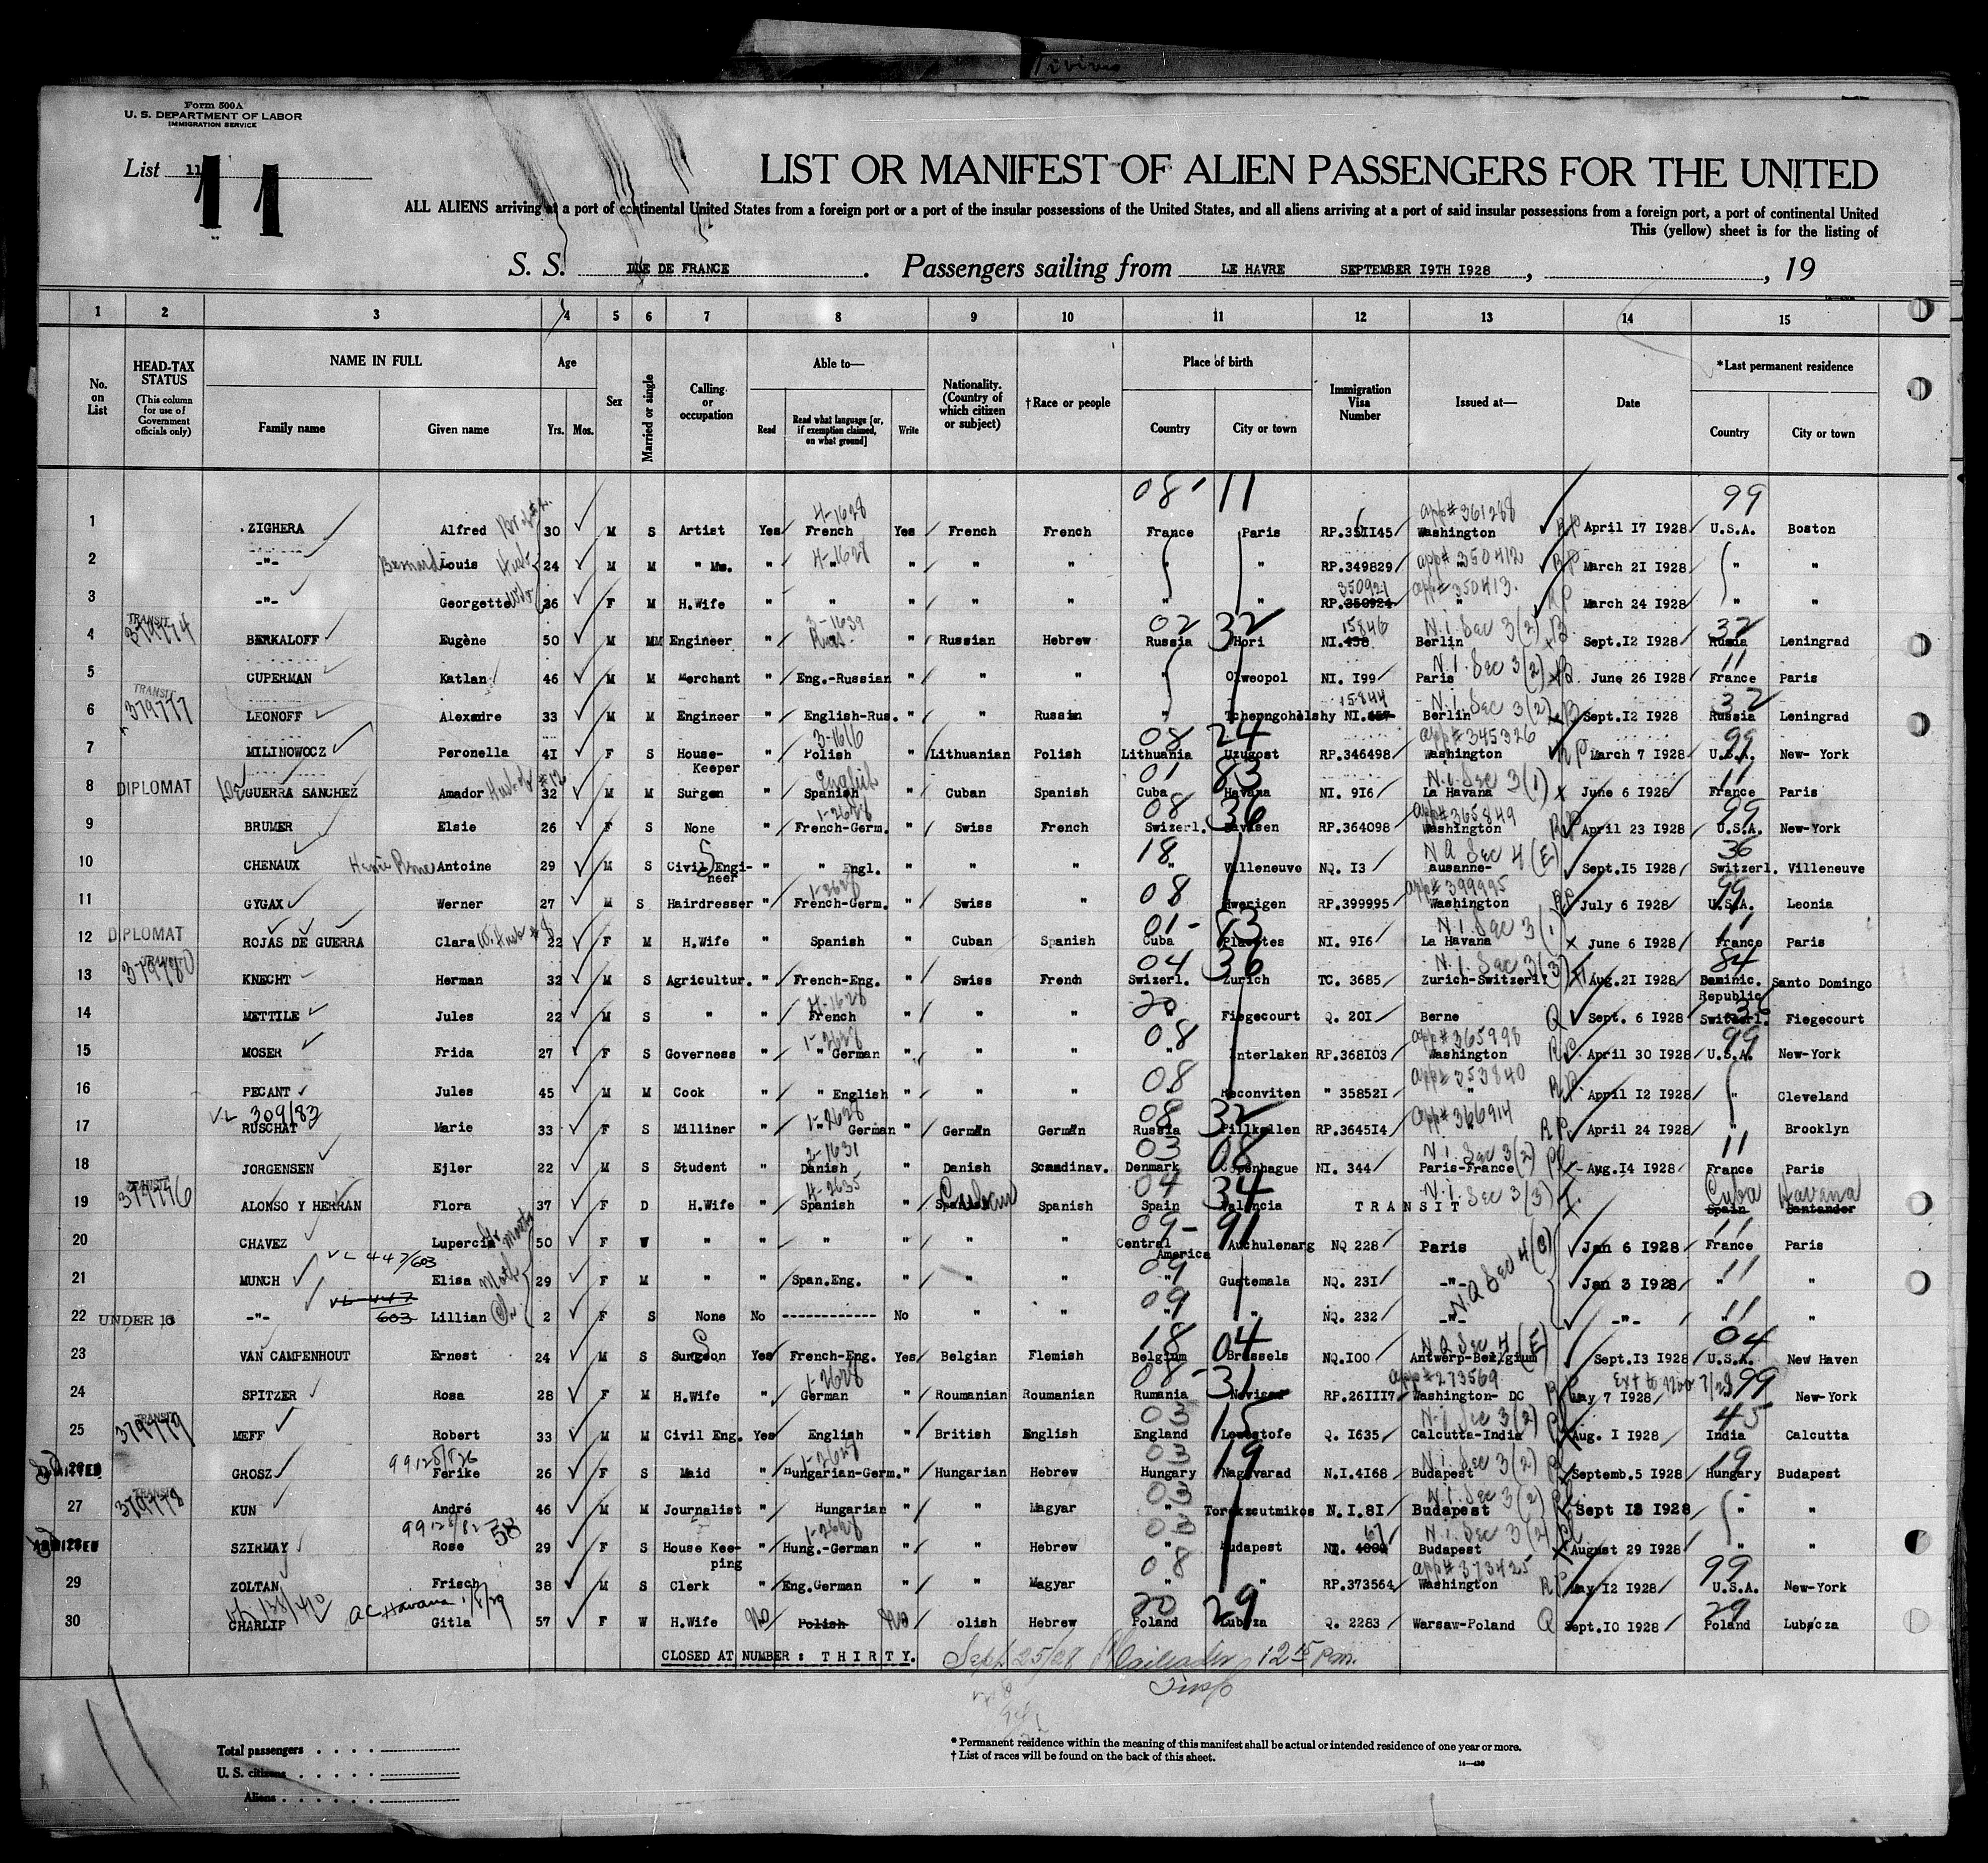 Form 500A
U. S. DEPARTMENT OF LABOR
IMMIGRATION SERVICE
List 11
11
LIST OR MANIFEST OF ALIEN PASSENGERS FOR THE UNITED
ALL ALIENS arriving at a port of continental United States from a foreign port or a port of the insular possessions of the United States, and all aliens arriving at a port of said insular possessions from a foreign port, a port of continental United
This (yellow) sheet is for the listing of
S. S. ILE DE FRANCE . Passengers sailing from LE HAVRE SEPTEMBER 19TH 1928 , , 19
1 2 3 4 5 6 7 8 9 10 11 12 13 14 15
No. on List
HEAD-TAX STATUS (This column for use of Government officials only)
NAME IN FULL Family name Given name
Age Yrs. Mos.
Sex
Married or single
Calling or occupation
Able to— Read Read what language [or, if exemption claimed, on what ground] Write
Nationality. (Country of which citizen or subject)
†Race or people
Place of birth Country City or town
Immigration Visa Number
Issued at—
Date
*Last permanent residence Country City or town
08 11 99
4-1628 app# 361288
1 ZIGHERA Alfred 30 M S Artist Yes French Yes French French France Paris RP.351145 Washington RP April 17 1928 U.S.A. Boston
4-1628 app# 350412
2 -"- Bernard Louis Husb 24 M M " Ms. " " " " " " " RP.349829 " RP March 21 1928 " "
350921 app# 350413.
3 -"- Georgette Wife 26 F M H.Wife " " " " " " " RP.350924 " RP March 24 1928 " "
TRANSIT 379774 3-1639 02 32 15846 N.I. Sec 3(2) 32
4 BERKALOFF Eugène 50 M MM Engineer " Russ. " Russian Hebrew Russia Hori NI.458 Berlin Sept.12 1928 Russia Leningrad
N.I. Sec 3(2) 11
5 CUPERMAN Katlan 46 M M Merchant " Eng.-Russian " " " " Olweopol NI. 199 Paris June 26 1928 France Paris
TRANSIT 379777 15844 N.I. Sec 3(2) 32
6 LEONOFF Alexandre 33 M M Engineer " English-Rus. " " Russian " Tchepngohelshy NI.457 Berlin Sept.12 1928 Russia Leningrad
3-1616 08 24 app# 345326 99
7 MILINOWOCZ Peronella 41 F S House-Keeper " Polish " Lithuanian Polish Lithuania Uzugost RP.346498 Washington RP March 7 1928 U.S.A. New- York
English 01 83 N.I. Sec 3(1) 11
8 DIPLOMAT De GUERRA SANCHEZ Amador Husb. of #12 32 M M Surgen " Spanish " Cuban Spanish Cuba Havana NI. 916 La Havana June 6 1928 France Paris
1-2628 08 36 app# 365849 99
9 BRUMER Elsie 26 F S None " French-Germ. " Swiss French Swizerl. RP.364098 Washington RP April 23 1928 U.S.A. New-York
18 NQ Sec 4(E) 36
10 CHENAUX Antoine 29 M S Civil Engi-neer " " Engl. " " " Villeneuve NQ. 13 ausanne- Sept.15 1928 Switzerl. Villeneuve
1-2628 08 app# 399995 99
11 GYGAX Werner 27 M S Hairdresser " French-Germ. " Swiss " RP.399995 Washington RP July 6 1928 U.S.A. Leonia
01- 83 N.I. Sec 3(1) 11
12 DIPLOMAT ROJAS DE GUERRA Clara W. Husb #8 22 F M H.Wife " Spanish " Cuban Spanish Cuba Placetes NI. 916 La Havana June 6 1928 France Paris
TRANSIT 379780 04 36 N.I. Sec 3(3) 84
13 KNECHT Herman 32 M S Agricultur. " French-Eng. " Swiss French Swizerl. Zurich TC. 3685 Zurich-Switzerl. Aug.21 1928 Daminic. Republic Santo Domingo
4-1628 20 36
14 METTILE Jules 22 M S " " French " " " " Fiegecourt Q. 201 Berne Q Sept. 6 1928 Switzerl. Fiegecourt
1-2628 08 app# 365998 99
15 MOSER Frida 27 F S Governess " " German " " " " Interlaken RP.368103 Washington RP April 30 1928 U.S.A. New-York
08 app# 353840
16 PECANT Jules 45 M M Cook " " English " " " " Reconviten " 358521 " RP April 12 1928 " Cleveland
VL 309/83 1-2628 08 32 app# 366914
17 RUSCHAT Marie 33 F S Milliner " " German " German German Russia Pillkallen RP.364514 RP April 24 1928 " Brooklyn
2-1631 03 08 N.I. Sec 3(2) 11
18 JORGENSEN Ejler 22 M S Student " Danish " Danish Scandinav. Denmark Copenhague NI. 344 Paris-France Aug.14 1928 France Paris
TRANSIT 379776 4-2635 Cuban 04 34 N.I. Sec 3(3) Cuba Havana
19 ALONSO Y HERRAN Flora 37 F D H.Wife " Spanish " Spanish Spanish Spain Valencia TRANSIT Spain Santander
09- 91 11
20 CHAVEZ Lupercia 50 F W " " " " " " Central America Auchulenarg NQ 228 Paris NQ Sec 4(C) Jan 6 1928 France Paris
VL 447/603 09 11
21 MUNCH Elisa Moth 29 F M " " Span.Eng. " " " " Guatemala NQ. 231 -"- Jan 3 1928 " "
VL 447 603 09 11
22 UNDER 16 -"- Lillian Ch. 2 F S None No ------------- No " " " " NQ. 232 -"- -"- " "
18 04 NQ Sec 4(E) 04
23 VAN CAMPENHOUT Ernest 24 M S Surgeon Yes French-Eng. Yes Belgian Flemish Belgium Brussels NQ.100 Antwerp-Belgium Sept.13 1928 U.S.A. New Haven
1-2628 08- 31 app# 273569 Ext to Nov 7/28 99
24 SPITZER Rosa 28 F M H.Wife " German " Roumanian Roumanian Rumania RP.261117 Washington- DC RP May 7 1928 New-York
TRANSIT 379779 03 15 N.I. Sec 3(2) 45
25 MEFF Robert 33 M M Civil Eng. Yes English " British English England Lowestofe Q. 1635 Calcutta-India Aug. 1 1928 India Calcutta
99128/826 1-2628 03 19 N.I. Sec 3(2) 19
26 ADMITTED GROSZ Ferike 26 F S Maid " Hungarian-Germ." Hungarian Hebrew Hungary Nagyvarad N.I.4168 Budapest Septemb.5 1928 Hungary Budapest
TRANSIT 379778 03 N.I. Sec 3(2)
27 KUN André 46 M M Journalist " Hungarian " Magyar " Torokzcutmikos N.I.81 Budapest Sept 13 1928 " "
58 1-2628 03 67 N.I. Sec 3(2)
28 ADMITTED SZIRMAY Rose 29 F S House Kee-ping " Hung.-German " " Hebrew " Budapest Budapest August 29 1928 " "
08 app# 373425 99
29 ZOLTAN Frisch 38 M S Clerk " Eng.German " " Magyar " " RP.373564 Washington RP May 12 1928 U.S.A. New-York
AC Havana 20 29 29
30 CHARLIP Gitla 57 F W H.Wife No Polish No olish Hebrew Poland Lubcza Q. 2283 Warsaw-Poland Q Sept.10 1928 Poland Lubcza
CLOSED AT NUMBER : THIRTY. Sept 25/28 12 15 Pm.
Insp
Total passengers . . . .
U. S. citizens . . . . .
Aliens . . . . . .
* Permanent residence within the meaning of this manifest shall be actual or intended residence of one year or more.
† List of races will be found on the back of this sheet.